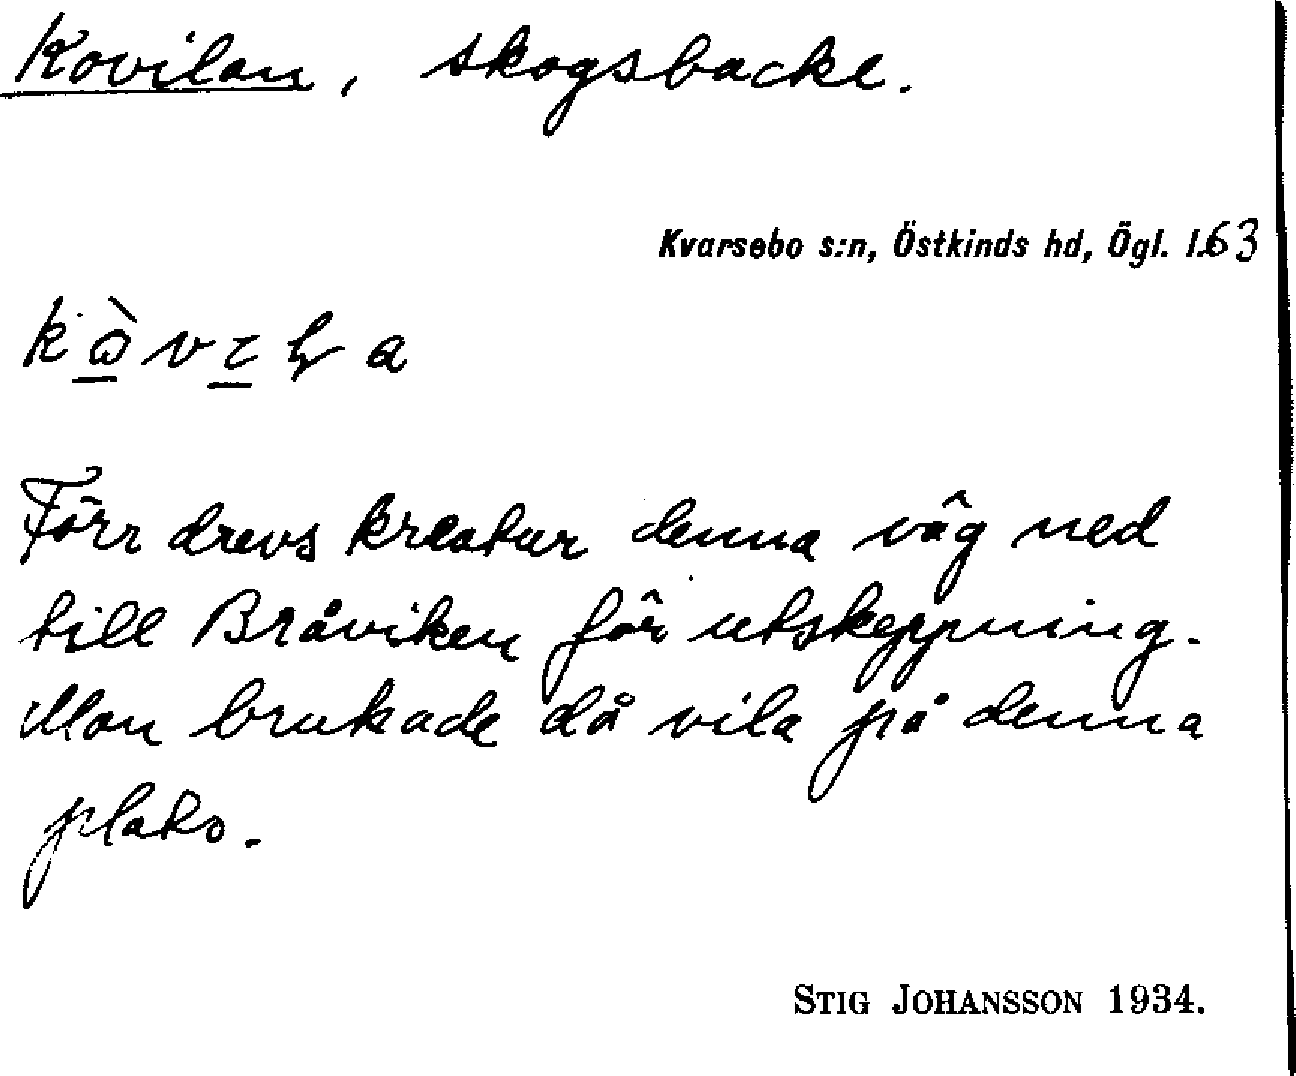 Kovilan, skogsbacke.
Kvarsebo s:n, Östkinds hd, Ögl. l.63
Förr drevs kreatur denna väg ned
till Bråviken för utskeppning.
Man brukade då vila på denna
plats.
STIG JOHANSSON 1934.